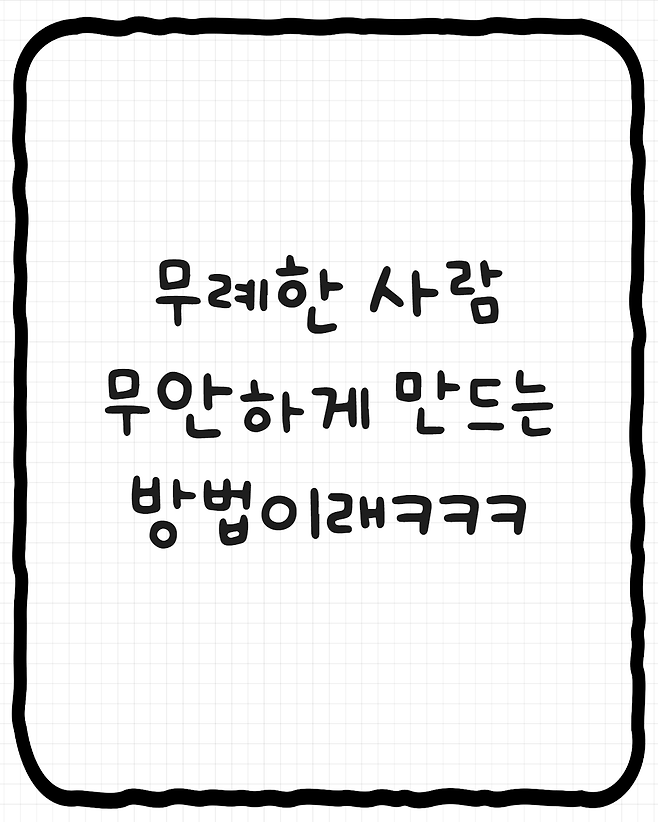 무례한 사람
무안하게 만드는
방법이래ㅋㅋㅋ